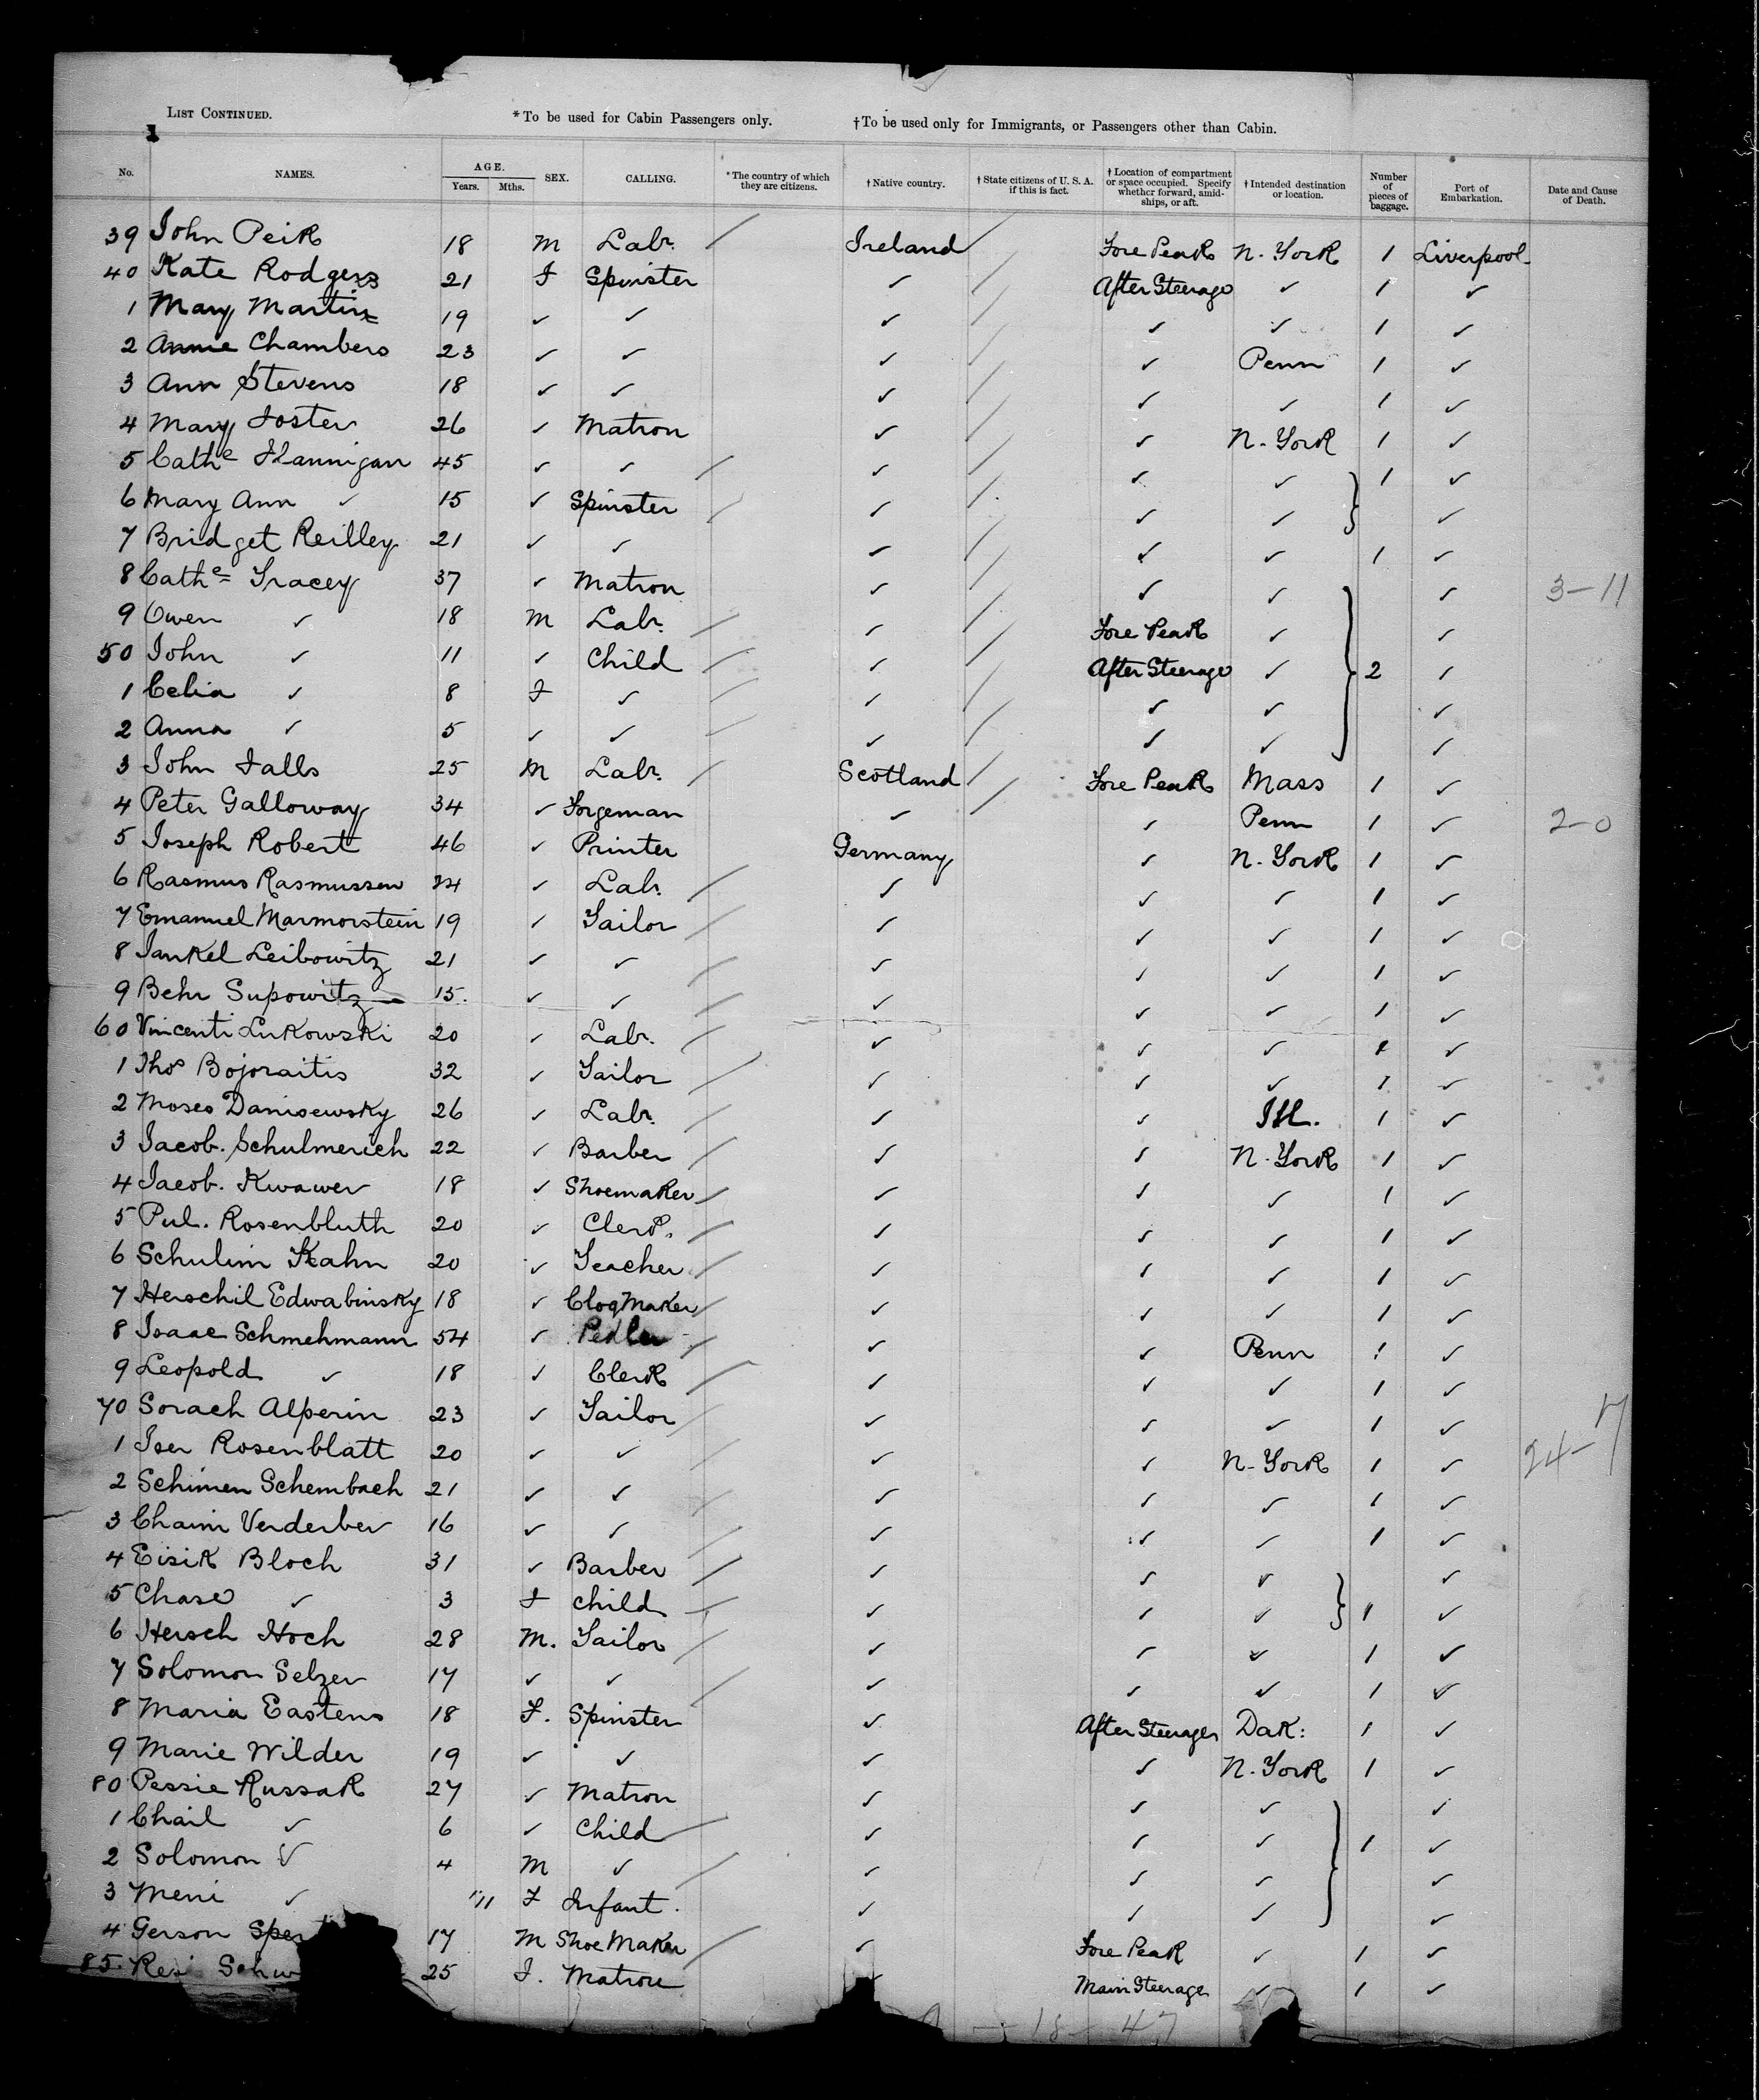 LIST CONTINUED. *To be used for Cabin Passengers only. †To be used only for Immigrants, or Passengers other than Cabin.
No. NAMES. AGE. Years. Mths. SEX. CALLING. *The country of which they are citizens. †Native country. †State citizens of U. S. A. if this is fact. †Location of compartment or space occupied. Specify whether forward, amidships, or aft. †Intended destination or location. Number of pieces of baggage. Port of Embarkation. Date and Cause of Death.
39 John Peik 18 M Labr. / Ireland / Fore Peak N. York 1 Liverpool
40 Kate Rodgers 21 F Spinster ✓ / After Steerage ✓ 1 ✓
1 Mary Martin 19 ✓ ✓ ✓ / ✓ ✓ 1 ✓
2 Annie Chambers 23 ✓ ✓ ✓ / ✓ Penn 1 ✓
3 Ann Stevens 18 ✓ ✓ ✓ / ✓ ✓ 1 ✓
4 Mary Foster 26 ✓ Matron ✓ / ✓ N. York 1 ✓
5 Cathe Flannigan 45 ✓ ✓ / ✓ / ✓ ✓ 1 ✓
6 Mary Ann ✓ 15 ✓ Spinster / ✓ / ✓ ✓ ✓
7 Bridget Reilley 21 ✓ ✓ ✓ / ✓ ✓ 1 ✓
8 Cathe Tracey 37 ✓ Matron ✓ / ✓ ✓ ✓ 3-11
9 Owen ✓ 18 M Labr. / ✓ / Fore Peak ✓ ✓
50 John ✓ 11 ✓ Child / ✓ / After Steerage ✓ 2 ✓
1 Celia ✓ 8 F ✓ / ✓ / ✓ ✓ ✓
2 Anna ✓ 5 ✓ ✓ / ✓ / ✓ ✓ ✓
3 John Falls 25 M Labr. / Scotland / Fore Peak Mass 1 ✓
4 Peter Galloway 34 ✓ Forgeman ✓ / ✓ Penn 1 ✓ 2-0
5 Joseph Robert 46 ✓ Printer Germany ✓ N. York 1 ✓
6 Rasmus Rasmussen 24 ✓ Labr. / ✓ ✓ ✓ 1 ✓
7 Emanuel Marmorstein 19 ✓ Tailor / ✓ ✓ ✓ 1 ✓
8 Jankel Leibowitz 21 ✓ ✓ / ✓ ✓ ✓ 1 ✓
9 Behr Supowitz 15. ✓ ✓ / ✓ ✓ ✓ 1 ✓
60 Vincenti Lukowski 20 ✓ Labr. / ✓ ✓ ✓ 1 ✓
1 Thos Bojoraitis 32 ✓ Tailor / ✓ ✓ ✓ 1 ✓
2 Moses Danisewsky 26 ✓ Labr. / ✓ ✓ Ill. 1 ✓
3 Jacob. Schulmerich 22 ✓ Barber / ✓ ✓ N. York 1 ✓
4 Jacob. Kwawer 18 ✓ Shoemaker / ✓ ✓ ✓ 1 ✓
5 Pul. Rosenbluth 20 ✓ Clerk. / ✓ ✓ ✓ 1 ✓
6 Schulim Kahn 20 ✓ Teacher / ✓ ✓ ✓ 1 ✓
7 Herschil Edwabinsky 18 ✓ Clog Maker / ✓ ✓ ✓ 1 ✓
8 Isaac Schmehmann 54 ✓ Pedler / ✓ ✓ Penn 1 ✓
9 Leopold ✓ 18 ✓ Clerk / ✓ ✓ ✓ 1 ✓
70 Sorach Alperin 23 ✓ Tailor / ✓ ✓ ✓ 1 ✓
1 Iser Rosenblatt 20 ✓ ✓ / ✓ ✓ N. York 1 ✓ 24-7
2 Schimen Schembach 21 ✓ ✓ / ✓ ✓ ✓ 1 ✓
3 Chaim Verderber 16 ✓ ✓ / ✓ ✓ ✓ 1 ✓
4 Eisik Bloch 31 ✓ Barber / ✓ ✓ ✓ ✓
5 Chase ✓ 3 F Child / ✓ ✓ ✓ 1 ✓
6 Hersch Hoch 28 M. Tailor / ✓ ✓ ✓ 1 ✓
7 Solomon Selzer 17 ✓ ✓ / ✓ ✓ ✓ 1 ✓
8 Maria Eastens 18 F. Spinster ✓ After Steerage Dak: 1 ✓
9 Marie Wilder 19 ✓ ✓ ✓ ✓ N. York 1 ✓
80 Pessie Russak 27 ✓ Matron ✓ ✓ ✓ ✓
1 Chail ✓ 6 ✓ Child / ✓ ✓ ✓ 1 ✓
2 Solomon ✓ 4 M ✓ / ✓ ✓ ✓ ✓
3 Meni ✓ 11 F Infant. ✓ ✓ ✓ ✓
4 Gerson Sper 17 M Shoe Maker / ✓ Fore Peak ✓ 1 ✓
85 Schw 25 F. Matron ✓ Main Steerage ✓ 1 ✓
- 18 - 47